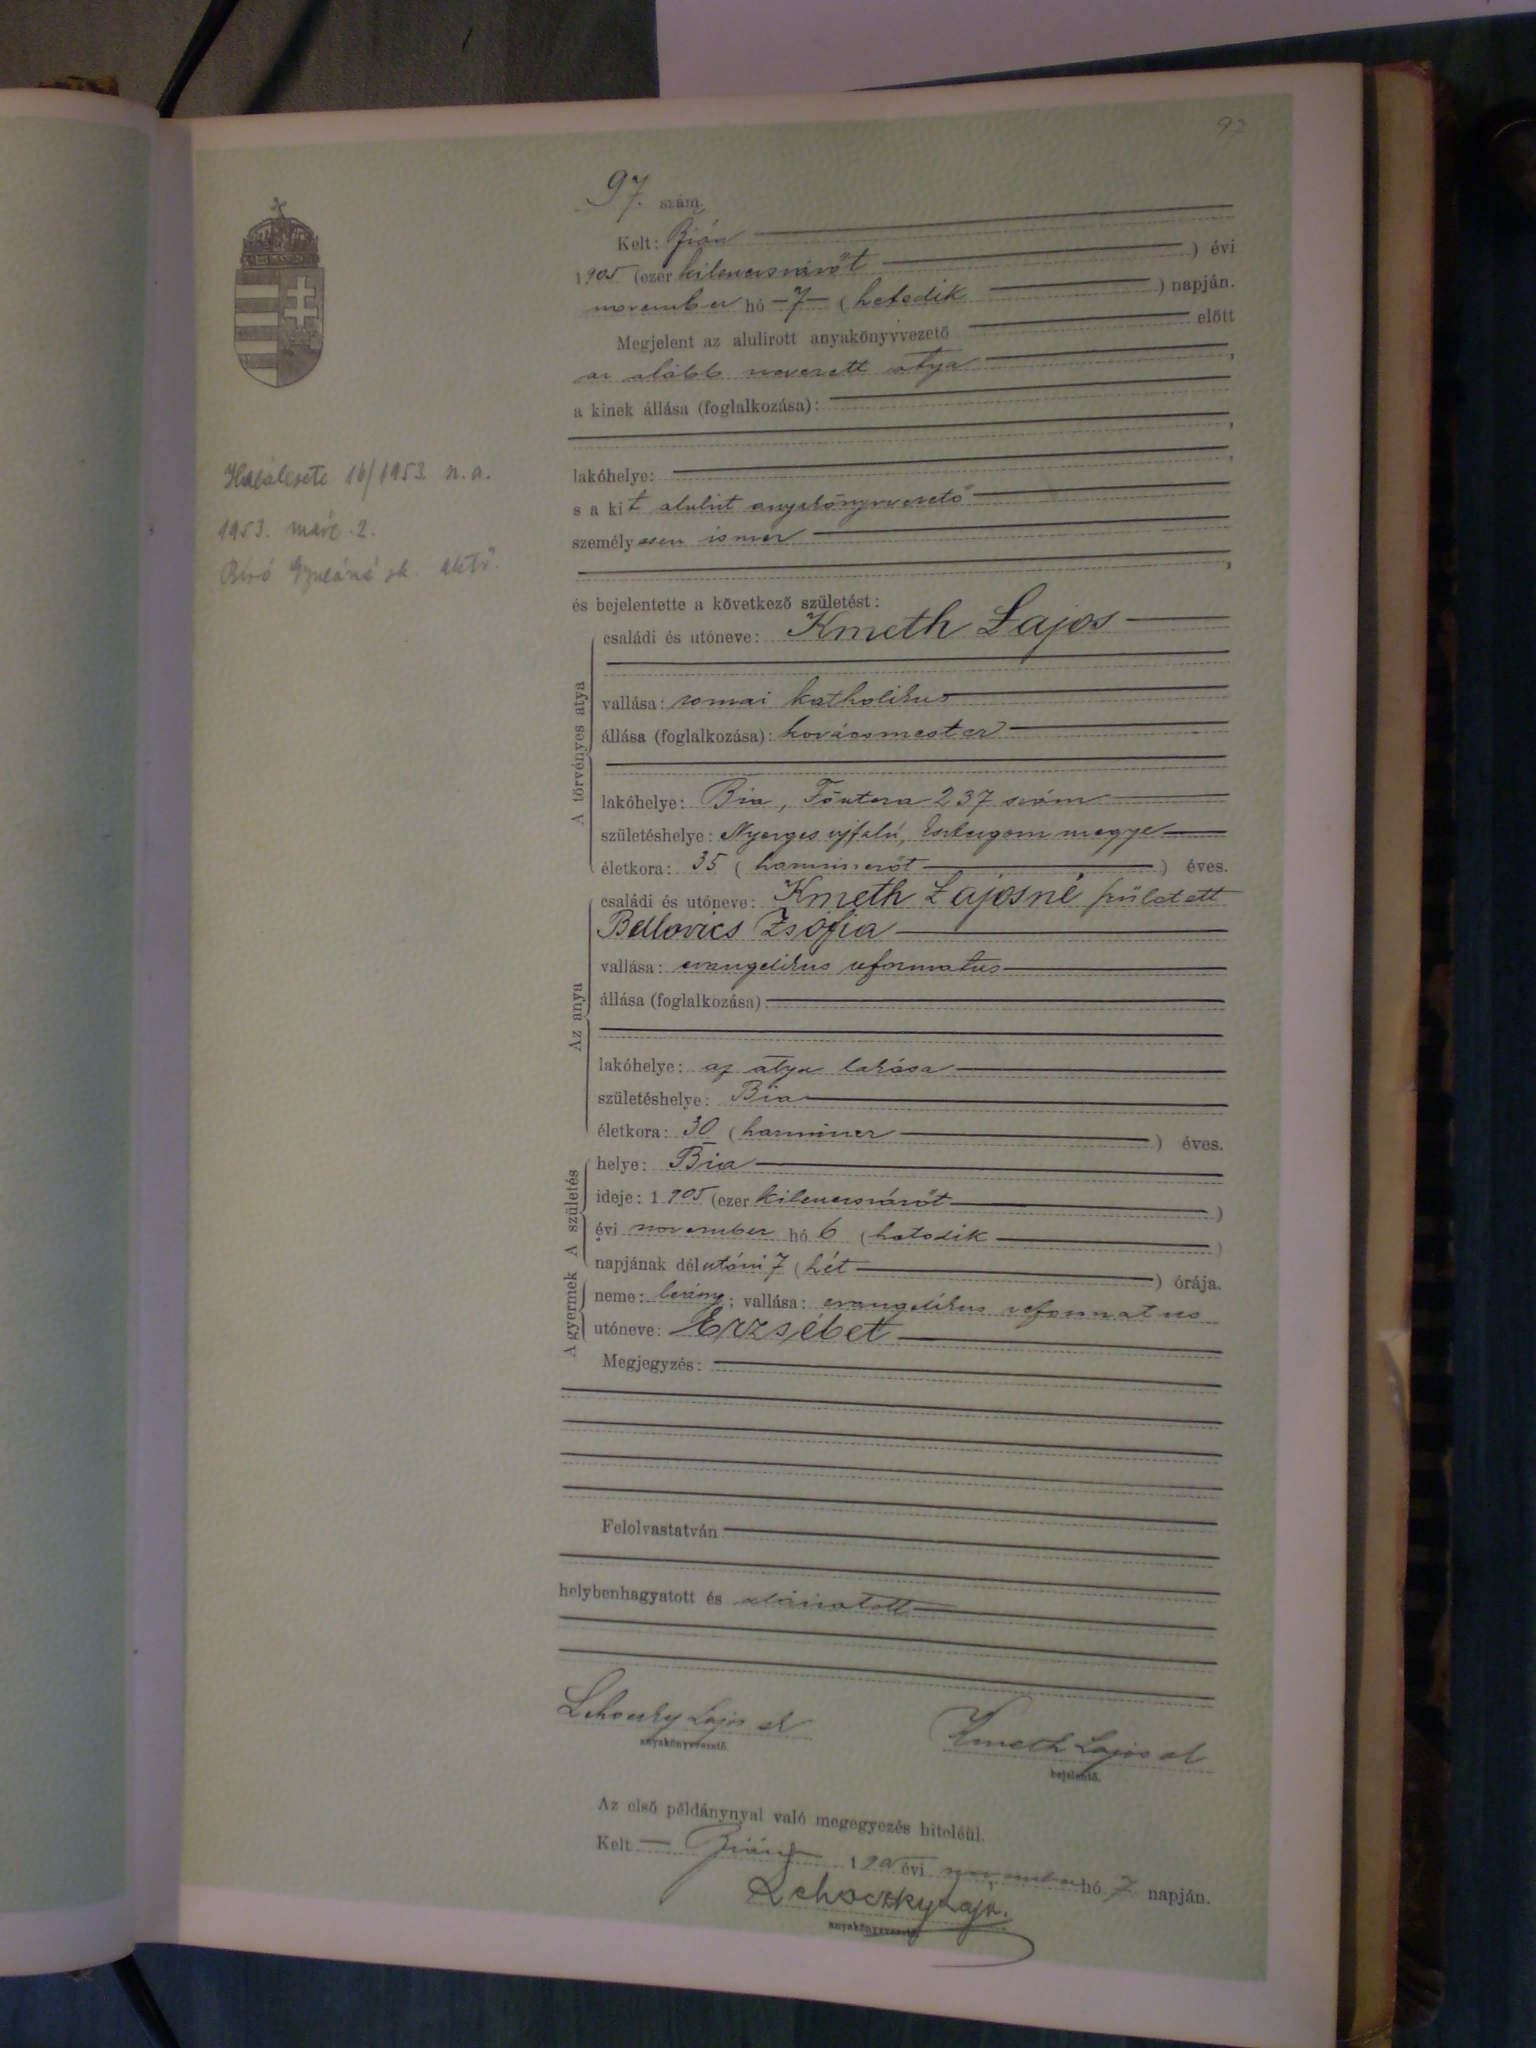 97
97. szám
Kelt: Bián
1905 (ezer kilencszázöt ) évi
november hó - 7 - (hetedik ) napján.
Megjelent az alulirott anyakönyvvezető előtt
az alább nevezett atya ,
a kinek állása (foglalkozása):
,
lakóhelye: ,
s a kit alulirt anyakönyvvezető
személyesen ismer
,
és bejelentette a következő születést:
A törvényes atya
családi és utóneve: Kmeth Lajos
vallása: romai katholikus
állása (foglalkozása): kovácsmester
lakóhelye: Bia, Főutca 237 szám
születéshelye: Nyerges ujfalú, Esztergom megye
életkora: 35 (harmincöt ) éves.
Az anya
családi és utóneve: Kmeth Lajosné született
Bellovics Zsófia
vallása: evangelikus reformatus
állása (foglalkozása):
lakóhelye: az atya lakása
születéshelye: Bia
életkora: 30 (harmincz ) éves.
A születés
helye: Bia
ideje: 1905 (ezer kilencszázöt )
évi november hó 6 (hatodik )
napjának délutáni 7 (hét ) órája.
A gyermek
neme: leány; vallása: evangelikus reformatus
utóneve: Erzsébet
Megjegyzés:
Felolvastatván
helybenhagyatott és aláiratott
Lehoczky Lajos sk
anyakönyvvezető.
Kmeth Lajos sk
bejelentő.
Az első példánynyal való megegyezés hiteléül.
Kelt - Bián 1905 évi november hó 7 napján.
Lehoczky Lajos.
anyakönyvvezető.
Halálesete 16/1953 n. a.
1953. márc. 2.
Biró Gyuláné sk.